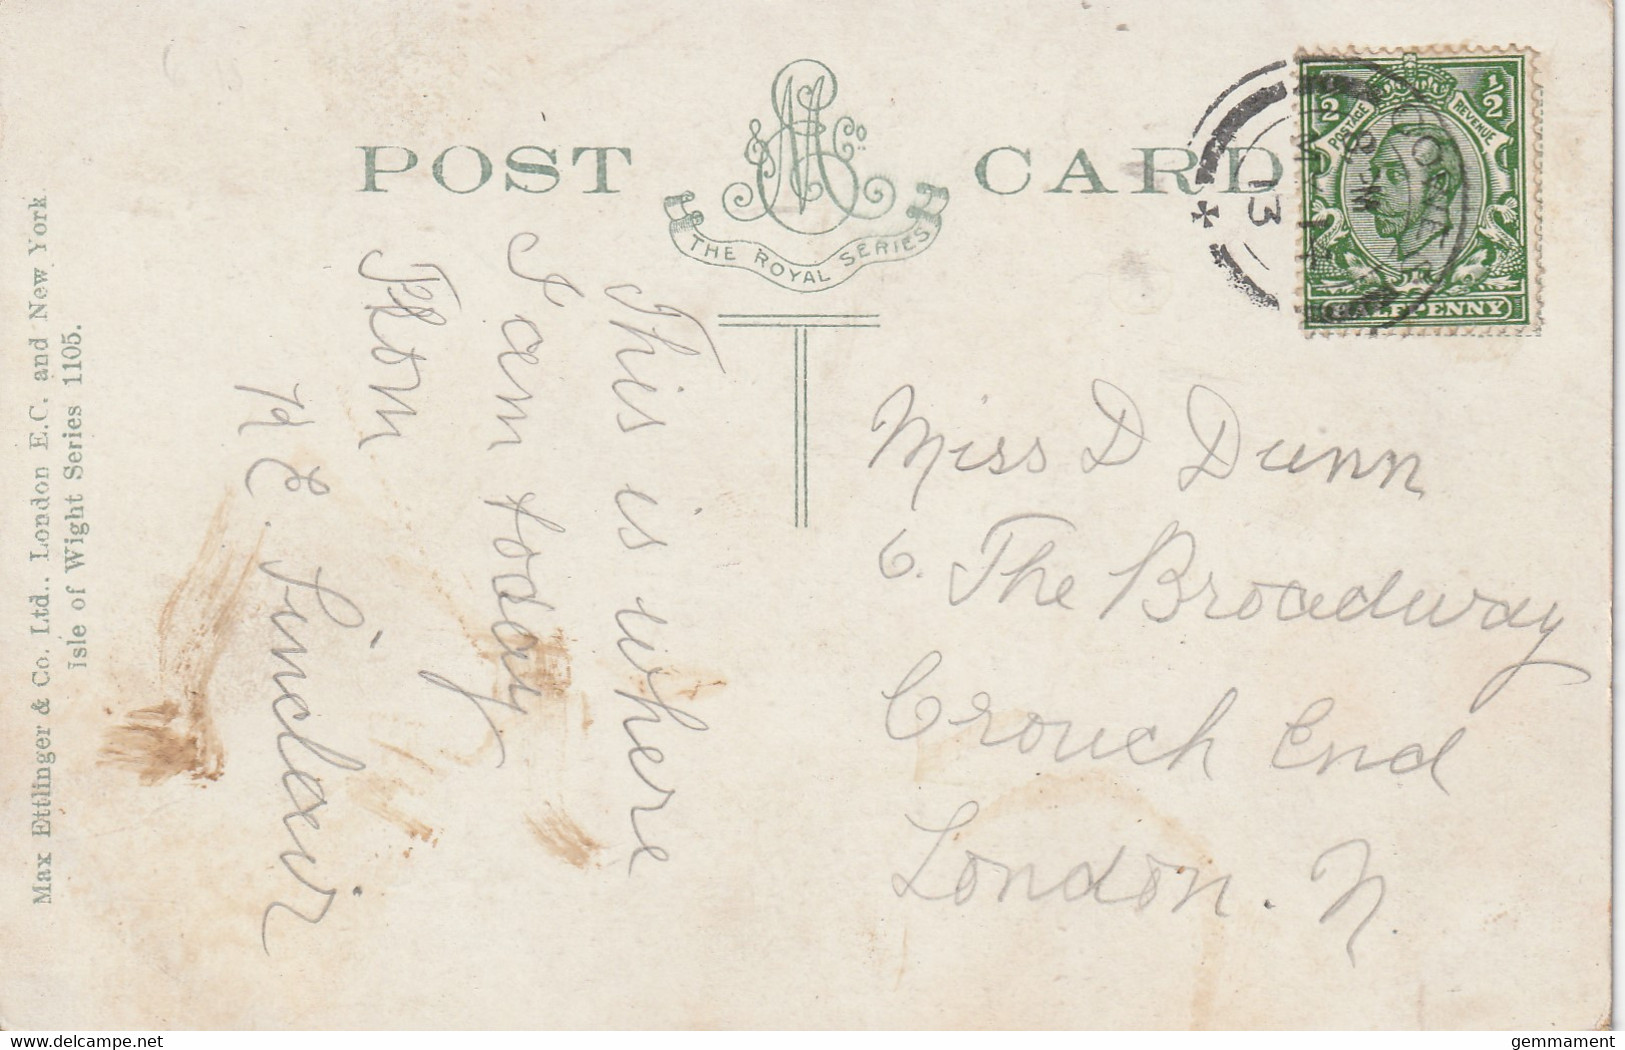 POST CARD
& Co.
THE ROYAL SERIES
1/2 1/2
POSTAGE REVENUE
HALFPENNY
13
Max Ettlinger & Co. Ltd., London E.C. and New York
Isle of Wight Series 1105.
This is where
I am today
From
E. Sinclair
Miss D Dunn
6. The Broadway
Crouch End
London. N.
delcampe.net
gemmament